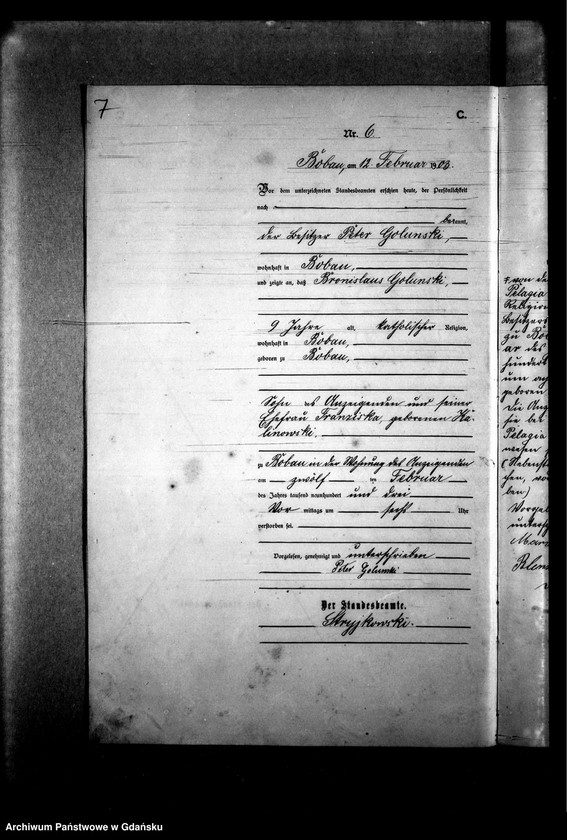 7
C.
Nr. 6
Bobau, am 12. Februar 1903.
Vor dem unterzeichneten Standesbeamten erschien heute, der Persönlichkeit
nach
bekannt,
der Besitzer Peter Golunski,
wohnhaft in Bobau,
und zeigte an, daß Bronislaus Golunski,
9 Jahre alt, katholischer Religion,
wohnhaft in Bobau,
geboren zu Bobau,
Sohn des Anzeigenden und seiner
Ehefrau Franziska, geborenen Ka-
linowski.
zu Bobau in der Wohnung des Anzeigenden
am zwölf ten Februar
des Jahres tausend neunhundert und drei
Vor mittags um sechs Uhr
verstorben sei.
Vorgelesen, genehmigt und unterschrieben
Peter Golunski
Der Standesbeamte.
Stryjkowski.
von de
Pelagia
Religion
Besitzers
zu Bob
ar des
hundert
um ach
geboren
Die Anz
sie bei
Pelagia
wesen
(Nebenst
hen, vo
ben)
Vorgel
untersch
Archiwum Państwowe w Gdańsku